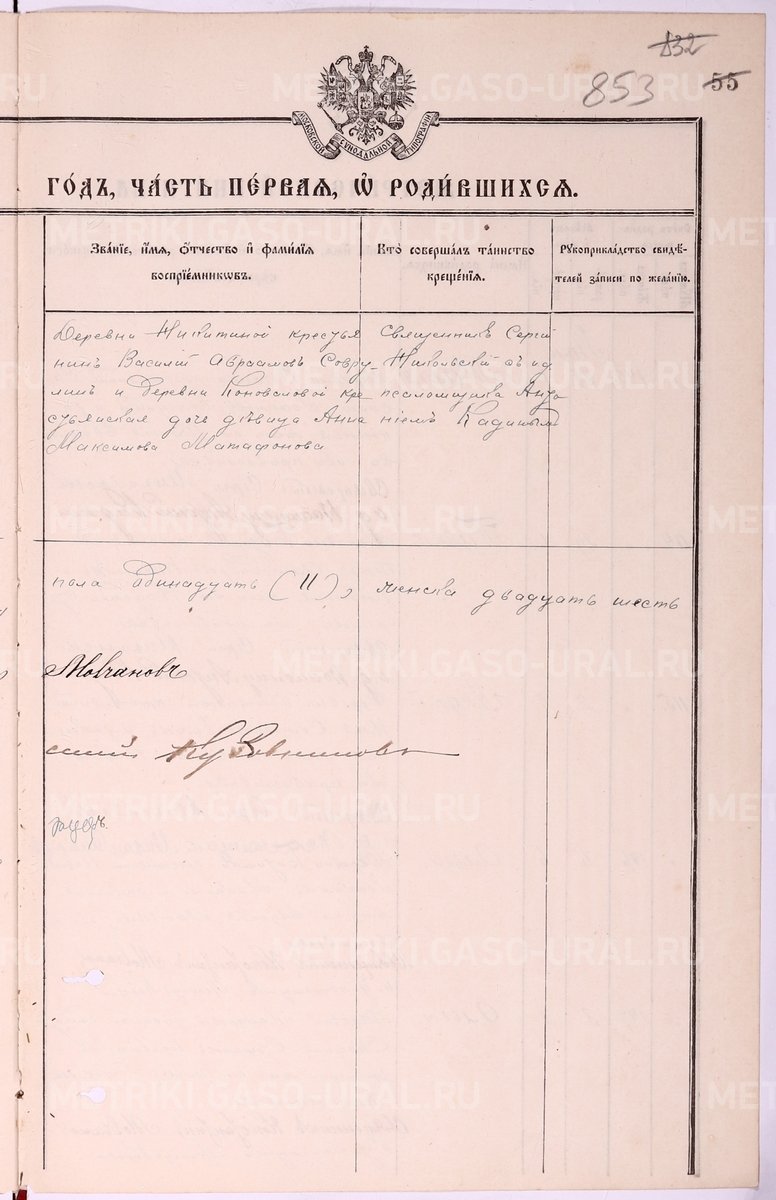 132
853 55
МОСКОВСКОЙ СУНОДАЛЬНОЙ ТИПОГРАФІИ
ГО́ДЪ, ЧА́СТЬ ПЕ́РВАЯ, Ѡ҆ РОДИ́ВШИХСЯ.
Зва́нїе, и҆́мѧ, ѻ҆́тчество и҆ фами́лїѧ
воспрїе́мникѡвъ.
Кто̀ соверша́лъ та́инство
креще́нїѧ.
Рꙋкоприкла́дство свидѣ́-
телей за́писи по жела́нїю.
Деревни Никитиной крестья
нинъ Василій Авраамовъ Совру_
линъ и деревни Коноваловой кре_
стьянская дочь дѣвица Анна
Максимова Матафонова
Священникъ Сергій
Никольскій съ и д
псаломщика Анто
ніемъ Кадинымъ
пола одинадцать (11), женска двадцать шесть
Молчановъ
скій Кузовниковъ
METRIKI.GASO-URAL.RU